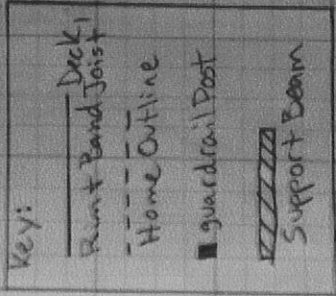 Key:
Deck,
Rim + Band Joist
Home Outline
guardrail Post
Support Beam